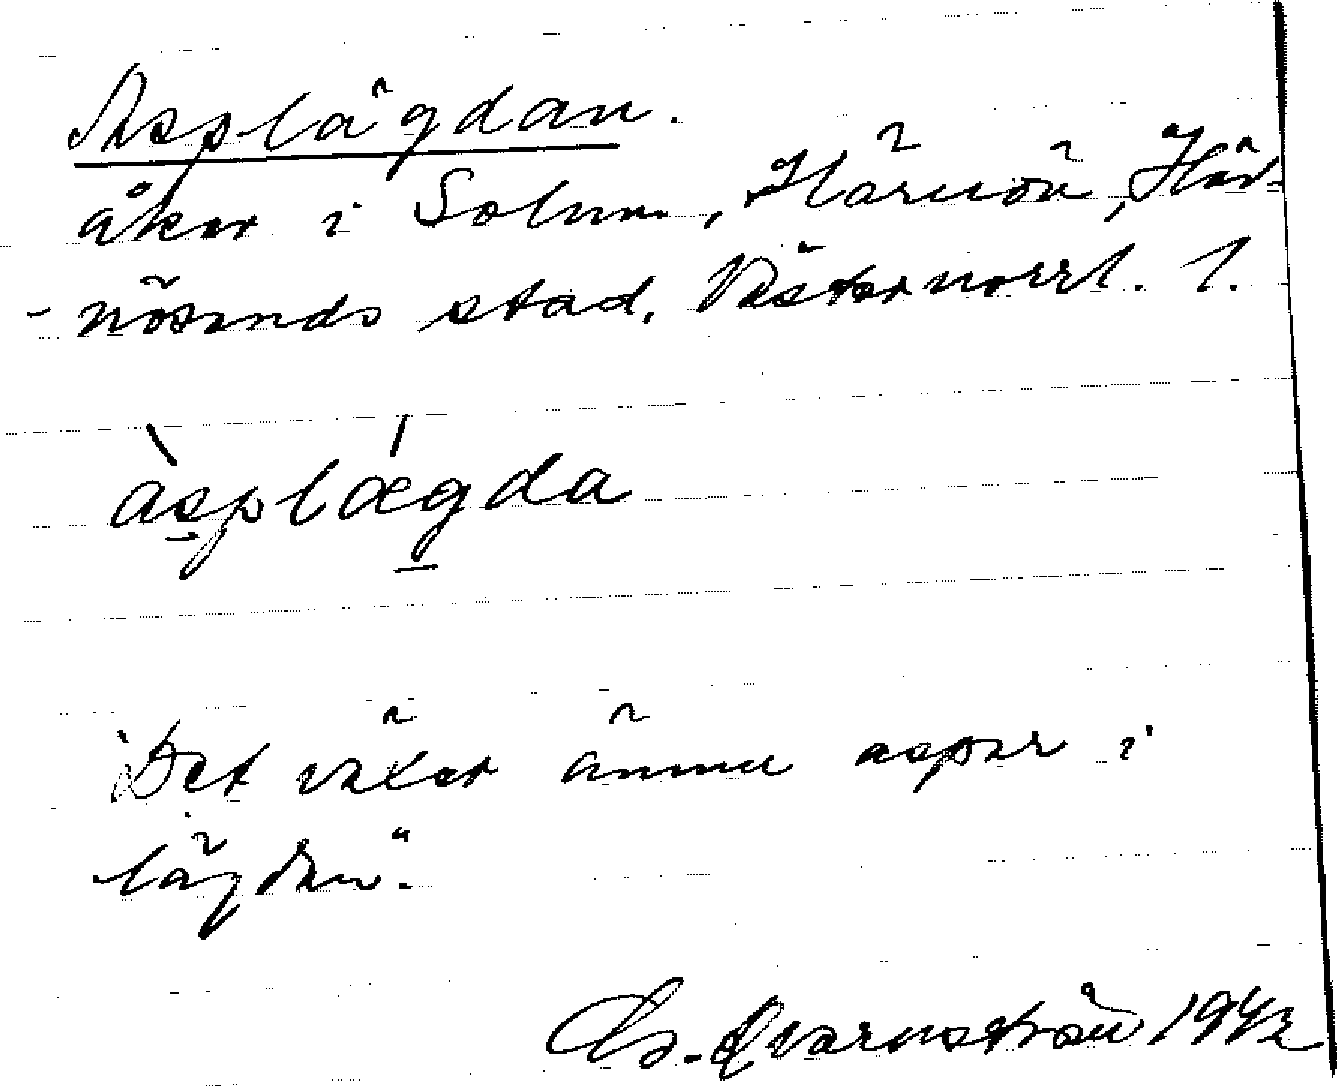 Asplägdan.
åker i Solum, Härnön, Här-
-nösands stad. Västernorrl. l.
àsplǽgda
"Det växer ännu aspar i
lägdan."
Qvarnström 1942